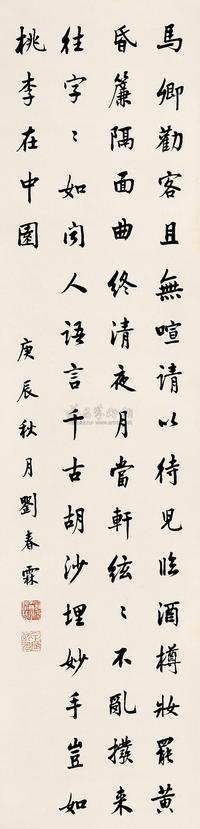 馬卿勸客且無喧請以待兒臨酒樽妝罷黃
昏簾隔面曲終清夜月當軒絃〻不亂撥来
往字〻如闻人語言千古胡沙埋妙手豈如
桃李在中園
庚辰秋月劉春霖